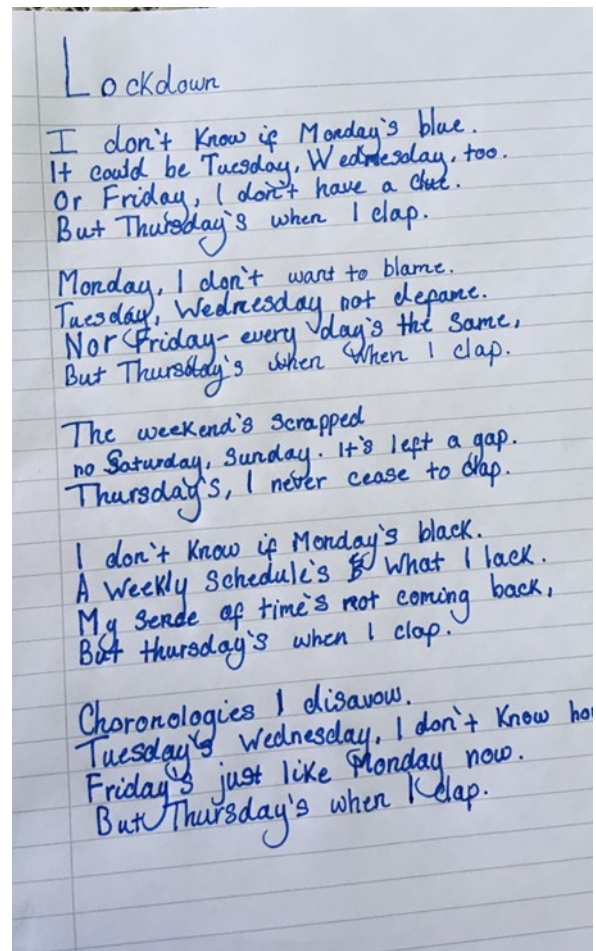 Lockdown
I don't Know if Monday's blue.
It could be Tuesday, Wednesday, too.
Or Friday, I don't have a clue.
But Thursday's when I clap.
Monday, I don't want to blame.
Tuesday, Wednesday not defame.
Nor Friday- every day's the same,
But Thursday's when when I clap.
The weekend's scrapped
no Saturday, Sunday. It's left a gap.
Thursday's, I never cease to clap.
I don't Know if Monday's black.
A Weekly Schedule's What I lack.
My Sense of time's not coming back,
But thursday's when I clap.
Choronologies I disavow.
Tuesday's Wednesday, I don't Know how
Friday's just like Monday now.
But Thursday's when I clap.